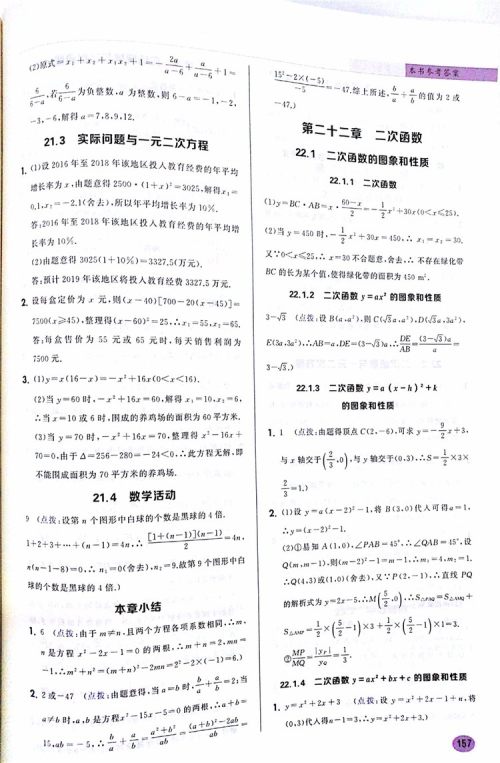 本书参考答案
(2)原式=x₁+x₂+x₁x₂+1=-2a/(a-6)+a/(a-6)+1=
6/(6-a),若6/(6-a)为负整数,a 为整数,则6-a=-1,-2,
-3,-6,解得 a=7,8,9,12.
21.3 实际问题与一元二次方程
1. (1)设 2016 年至 2018 年该地区投入教育经费的年平均
增长率为 x,由题意得 2500·(1+x)²=3025,解得x₁=
0.1,x₂=-2.1(舍去),所以年平均增长率为 10%.
答:2016 年至 2018 年该地区投入教育经费的年平均增
长率为 10%.
(2)由题意得 3025(1+10%)=3327.5(万元).
答:预计 2019 年该地区将投入教育经费 3327.5 万元.
2. 设每盒定价为 x 元,则(x-40)[700-20(x-45)]=
7500(x≥45),整理得(x-60)²=25,∴x₁=55,x₂=65.
答:每盒售价为 55 元或 65 元时,每天销售利润为
7500 元.
3. (1)y=x(16-x)=-x²+16x(0<x<16).
(2)当 y=60 时,-x²+16x=60,解得 x₁=10,x₂=6,
∴当 x=10 或 6 时,围成的养鸡场的面积为 60 平方米.
(3)当 y=70 时,-x²+16x=70,整理得 x²-16x+
70=0,由于 Δ=256-280=-24<0,∴此方程无解,即
不能围成面积为 70 平方米的养鸡场.
21.4 数学活动
9 (点拨:设第 n 个图形中白球的个数是黑球的 4 倍.
1+2+3+…+(n-1)=4n,∴[1+(n-1)](n-1)/2=4n,
n(n-1-8)=0,∴n₁=0(舍去),n₂=9,故第 9 个图形中白
球的个数是黑球的 4 倍.)
本章小结
1. 6 (点拨:由于 m≠n,且两个方程各项系数相同,∴m,
n 是方程 x²-2x-1=0 的两根,∴m+n=2,mn=
-1,∴m²+n²=(m+n)²-2mn=2²-2×(-1)=6.)
2. 2 或-47 (点拨:由题意得,当 a=b 时,b/a+a/b=2;当
a≠b 时,a,b 是方程x²-15x-5=0 的两根,∴a+b=
15,ab=-5,∴b/a+a/b=(a²+b²)/ab=((a+b)²-2ab)/ab=
(15²-2×(-5))/-5=-47.综上所述,b/a+a/b的值为 2 或
-47.)
第二十二章 二次函数
22.1 二次函数的图象和性质
22.1.1 二次函数
(1)y=BC·AB=x·(60-x)/2=-1/2x²+30x(0<x≤25).
(2)当 y=450 时,-1/2x²+30x=450,∴x₁=x₂=30.
又∵0<x≤25,∴x=30 不合题意,舍去,∴不存在绿化带
BC 的长为某个值,使得绿化带的面积为 450 m².
22.1.2 二次函数 y=ax² 的图象和性质
3-√3 (点拨:设 B(a,a²),则 C(√3a,a²),D(√3a,3a²),
E(3a,3a²),∴AB=a,DE=(3-√3)a,∴DE/AB=(3-√3)a/a=
3-√3.)
22.1.3 二次函数 y=a(x-h)²+k
的图象和性质
1. 1 (点拨:由题得顶点C(2,-6),可求 y=-9/2x+3,
与 x 轴交于(2/3,0),与 y 轴交于(0,3),∴S=1/2×3×
2/3=1.)
2. (1)设 y=a(x-2)²-1,将 B(3,0)代入可得 a=1,
∴y=(x-2)²-1.
(2)①易知 A(1,0),∠PAB=45°,∴∠QAB=45°,设
Q(m,m-1),则(m-2)²-1=m-1,∴m₁=4,m₂=1.
∴Q(4,3)或(1,0)(舍去),又∵P(2,-1),∴直线 PQ
的解析式为 y=2x-5,∴M(5/2,0),∴S△PAQ=S△AMQ+
S△AMP=1/2×(5/2-1)×3+1/2×(5/2-1)×1=3.
②MP/MQ=|yP|/yQ=1/3.
22.1.4 二次函数 y=ax²+bx+c 的图象和性质
1. y=x²+2x+3 (点拨:设 y=x²+2x-1+n,将
(0,3)代入得n-1=3,∴y=x²+2x+3.)
157